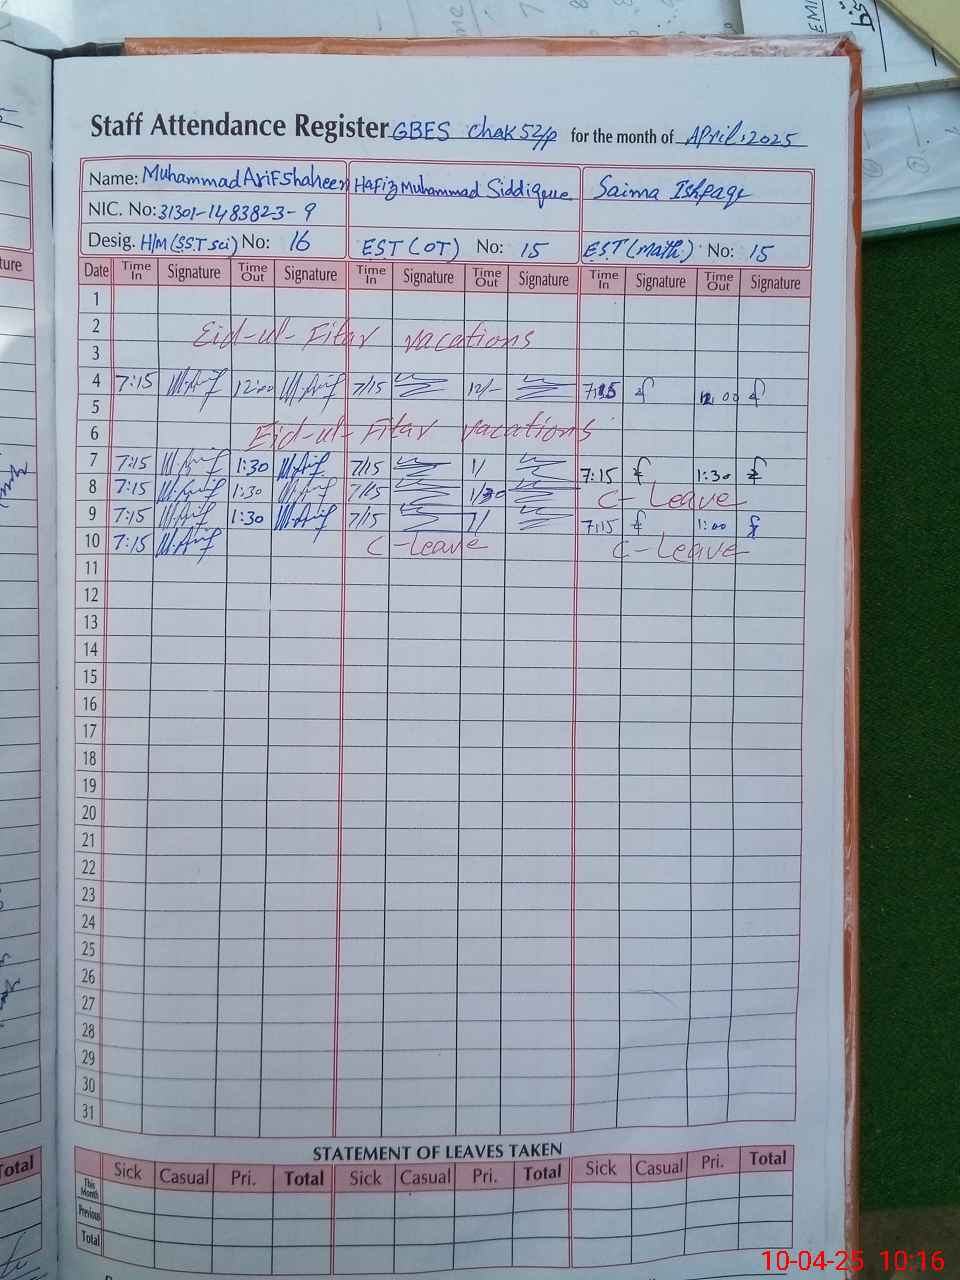 Staff Attendance Register GBES Chak 52/p for the month of April, 2025
Name: Muhammad Arif Shaheen Hafiz Muhammad Siddique Saima Ishfaq
NIC. No: 31301-1483823-9
Desig. H/M (SST sci) No: 16 EST (OT) No: 15 EST (Math.) No: 15
Date Time In Signature Time Out Signature Time In Signature Time Out Signature Time In Signature Time Out Signature
1
2 Eid-ul-Fitar vacations
3
4 7:15 M.Arif 12:00 M.Arif 7/15 12/- 7:15 12:00
5
6 Eid-ul-Fitar vacations
7 7:15 M.Arif 1:30 M.Arif 7/15 1/ 7:15 1:30
8 7:15 M.Arif 1:30 M.Arif 7/15 1/30 C-Leave
9 7:15 M.Arif 1:30 M.Arif 7/15 7:15 1:00
10 7:15 M.Arif C-leave C-Leave
11
12
13
14
15
16
17
18
19
20
21
22
23
24
25
26
27
28
29
30
31
STATEMENT OF LEAVES TAKEN
Sick Casual Pri. Total Sick Casual Pri. Total Sick Casual Pri. Total
This Month
Previous
Total
10-04-25 10:16